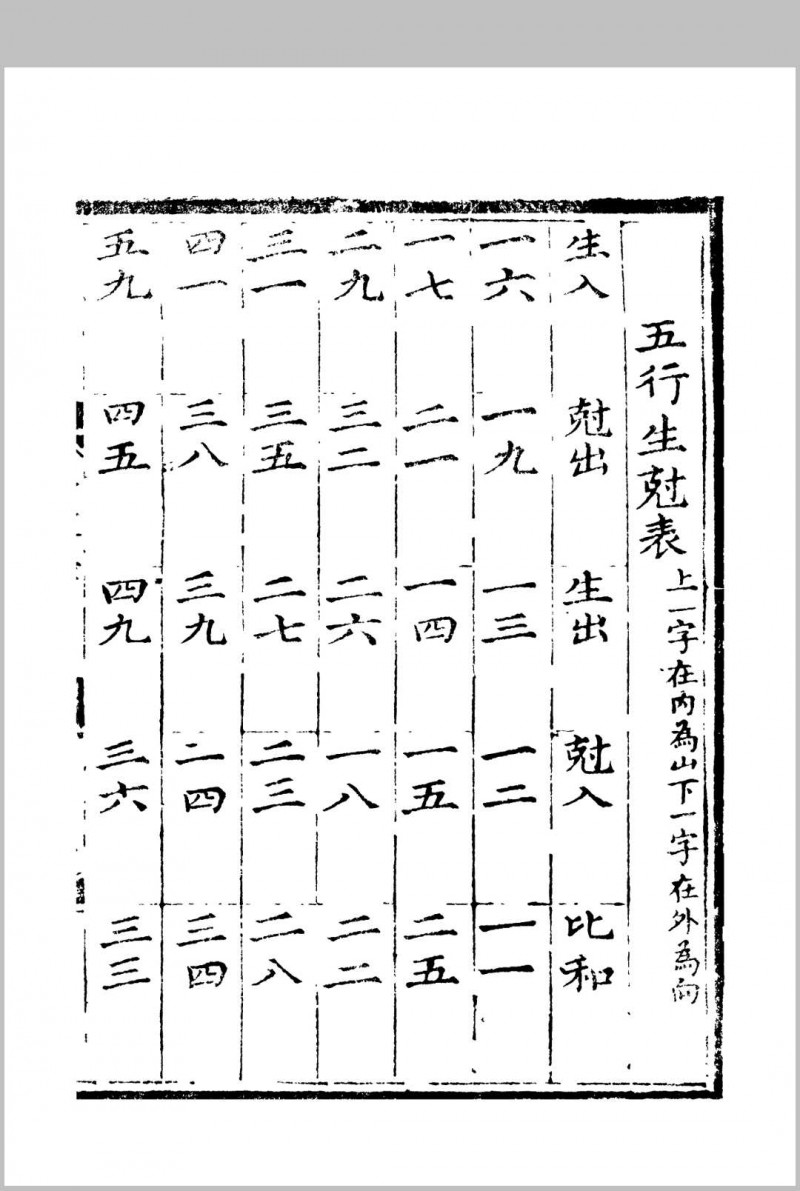 五行生尅表 上一字在内為山下一字在外為向
生入 尅出 生出 尅入 比和
一六 一九 一三 一二 一一
一七 二一 一四 一五 二五
二九 三二 二六 一八 二二
三一 三五 二七 二三 二八
四一 三八 三九 二四 三四
五九 四五 四九 三六 三三